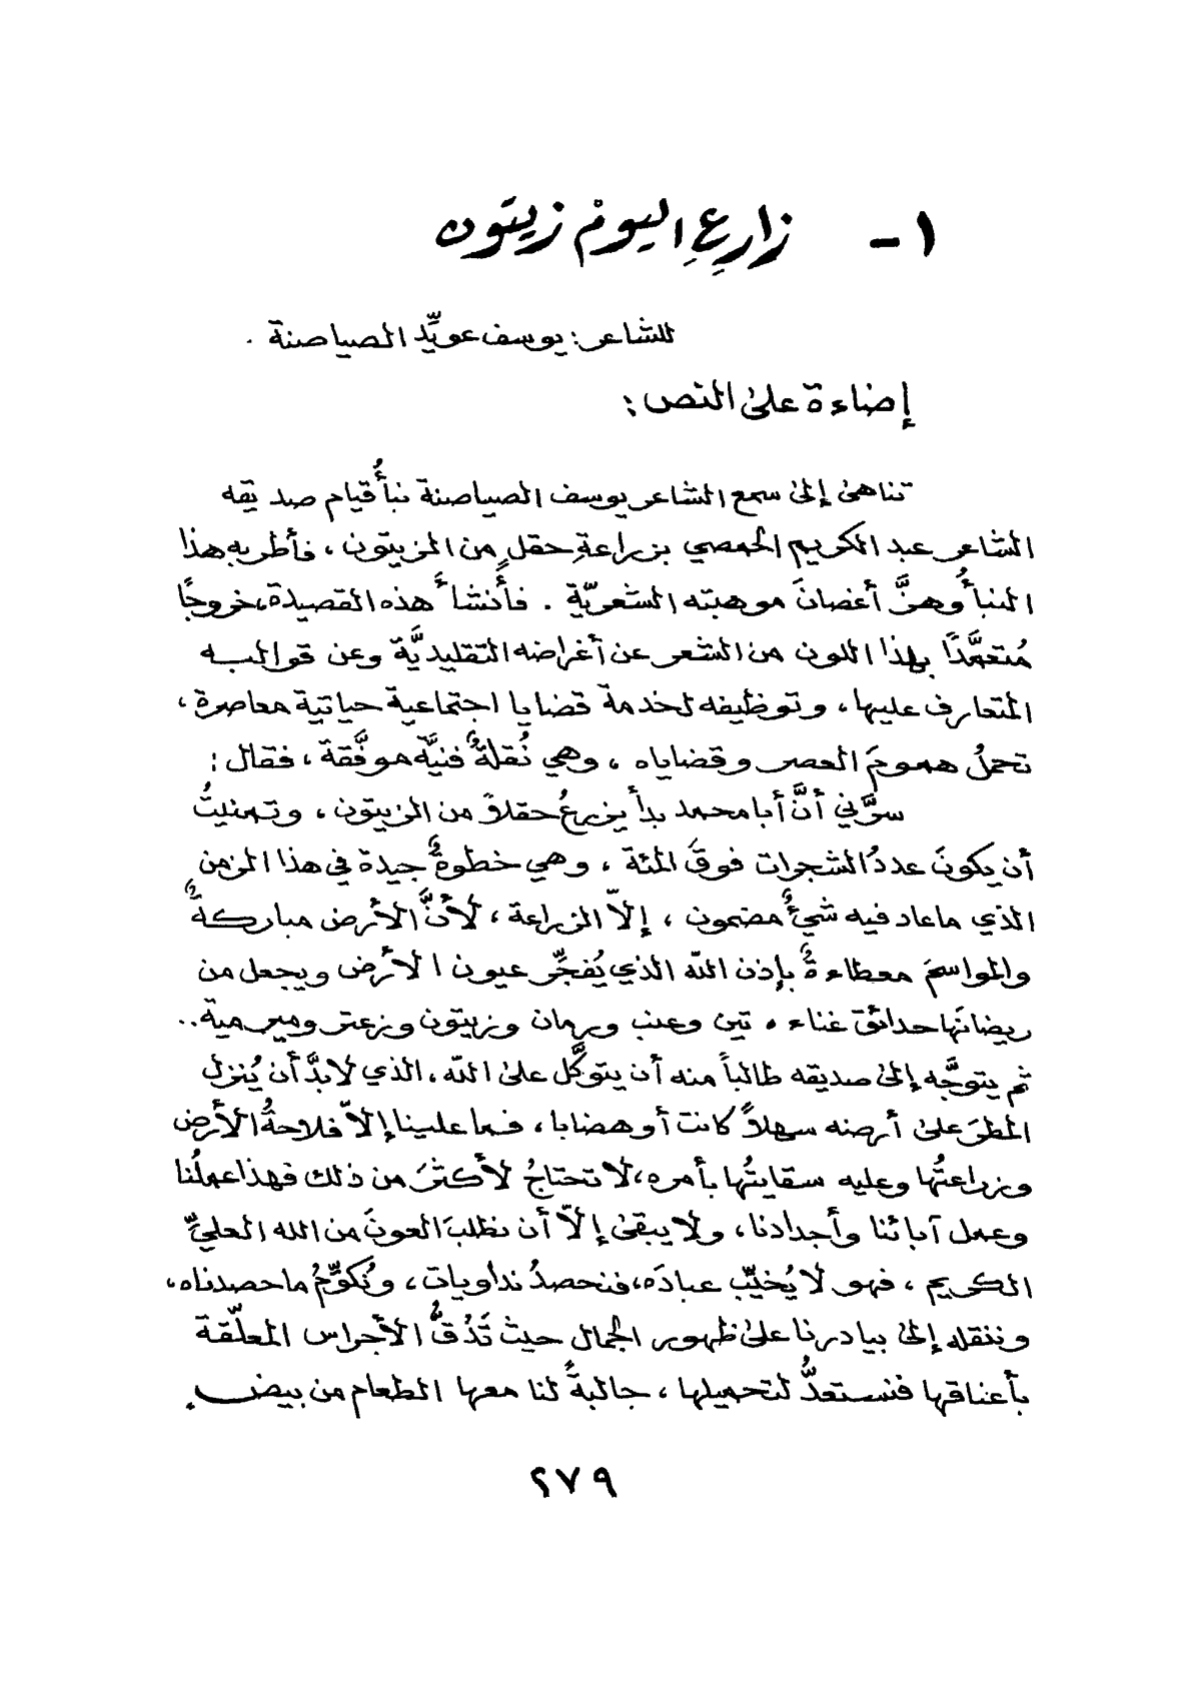 ١- زارعِ اليومْ زيتون
للشاعر: يوسف عويِّد الصياصنة .
إضاءة على النص:
تناهى إلى سمع الشاعر يوسف الصياصنة نبأُ قيام صديقه
الشاعر عبد الكريم الحمصي بزراعةِ حقلٍ من الزيتون ، فأطربه هذا
النبأُ وهزَّ أغصانَ موهبته الشعريّةِ . فأنشأَ هذه القصيدة، خروجًا
مُتعمَّدًا بهذا اللون من الشعر عن أغراضه التقليديَّة وعن قوالبه
المتعارف عليها ، وتوظيفه لخدمة قضايا اجتماعية حياتية معاصرة ،
تحملُ همومَ العصر وقضاياه ، وهي نُقلةٌ فنيَّة موفَّقة ، فقال :
سرَّني أنَّ أبا محمد بدأ يزرعُ حقلاً من الزيتون ، وتمنيتُ
أن يكونَ عددُ الشجرات فوقَ المئة ، وهي خطوةٌ جيدة في هذا الزمن
الذي ماعاد فيه شيءٌ مضمون ، إلاّ الزراعة ، لأنَّ الأرض مباركةٌ
والمواسمَ معطاءةٌ بإذن الله الذي يُفجِّر عيون الأرض ويجعل من
ريضانها حدائقَ غناء ، تين وعنب ورمان وزيتون وزعتر وميرمية..
ثم يتوجَّه إلى صديقه طالباً منه أن يتوكَّل على الله ، الذي لابدَّ أن يُنزل
المطرَ على أرضه سهلاً كانت أو هضابا ، فما علينا إلاّ فلاحةُ الأرض
وزراعتُها وعليه سقايتُها بأمره، لا تحتاجُ لأكثرَ من ذلك فهذا عملُنا
وعمل آبائنا وأجدادنا ، ولا يبقى إلاّ أن نطلبَ العونَ من الله العليِّ
الكريم ، فهو لا يُخيِّب عبادَه، فنحصدُ نداويات ، ونُكوِّمُ ما حصدناه،
وننقله إلى بيادرنا على ظهور الجمال حيث تَدُقُّ الأجراس المعلّقة
بأعناقها فنستعدُّ لتحميلها ، جالبةً لنا معها الطعام من بيضٍ
٢٧٩